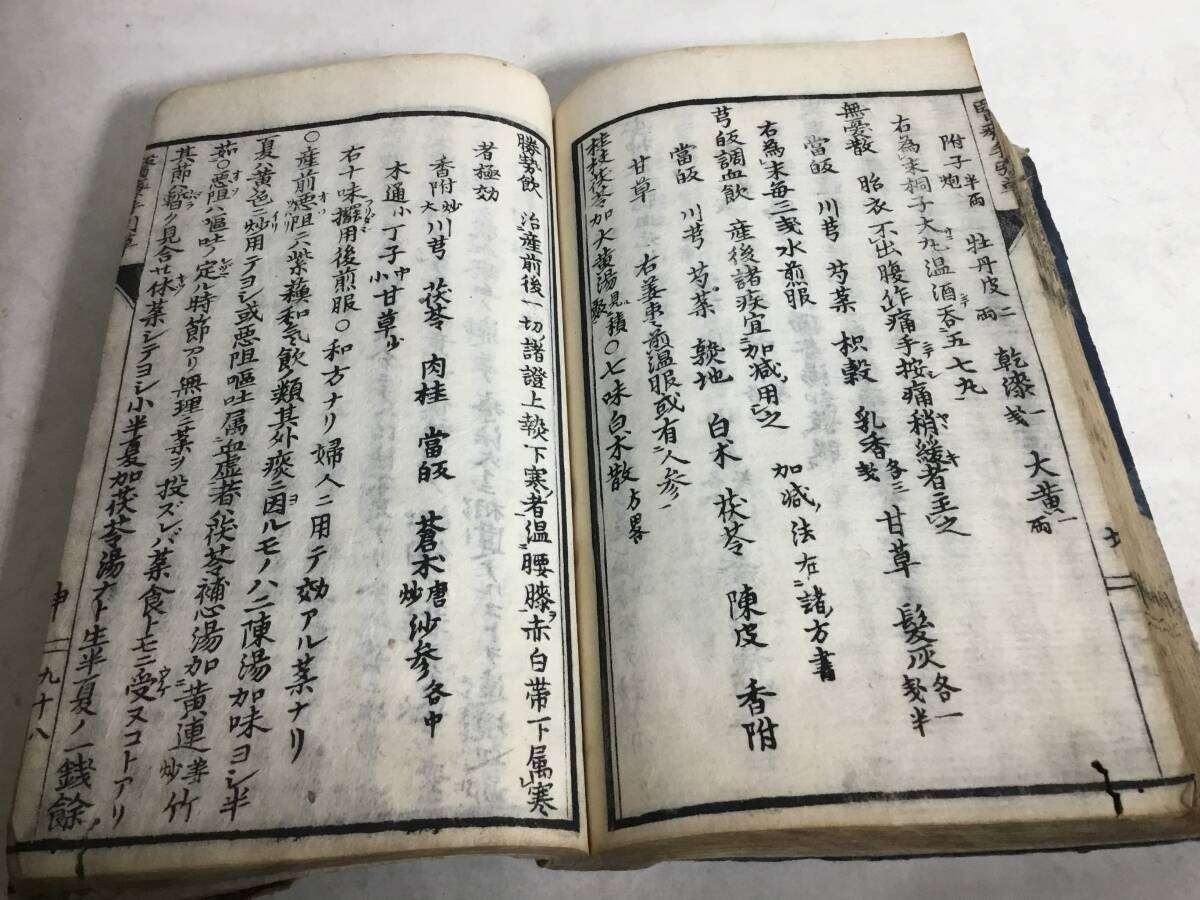 附子炮半両 牡丹皮二両 乾漆一戔 大黄一両
右為末桐子大丸温酒呑五七丸
無憂散 胎衣不出腹作痛手按痛稍緩者主之
當皈 川芎 芍薬 枳殻 乳香各三戔 甘草 髪灰各一戔半
右為末毎三戔水煎服
芎皈調血飲 産後諸疾宜加減用之 加減ノ法在諸方書
當皈 川芎 芍薬 熟地 白朮 茯苓 陳皮 香附
甘草 右姜棗煎温服或有人参
桂枝茯苓加大黄湯見積聚 ○七味白朮散方畧
勝勢飲 治産前後一切諸證上熱下寒者温腰膝赤白帯下属寒
者極効
香附炒大 川芎 茯苓 肉桂 當皈 蒼朮唐炒 沙参各中
木通小 丁子中小 甘草少
右十味撥用後煎服○和方ナリ婦人ニ用テ効アル薬ナリ
○産前悪阻ニハ紫蘓和気飲ノ類其外痰ニ因ルモノハ二陳湯加味ヨシ半
夏ハ黄色ニ炒用テヨシ或悪阻嘔吐属血虚者ハ茯苓補心湯加黄連姜炒竹
茹○悪阻ハ嘔吐ノ定ル時節アリ無理ニ薬ヲ投ズレバ薬食トモニ受ヌコトアリ
其節ハ暫ク見合せ休薬シテヨシ小半夏加茯苓湯ズト生半夏ノ一銭餘
九十八